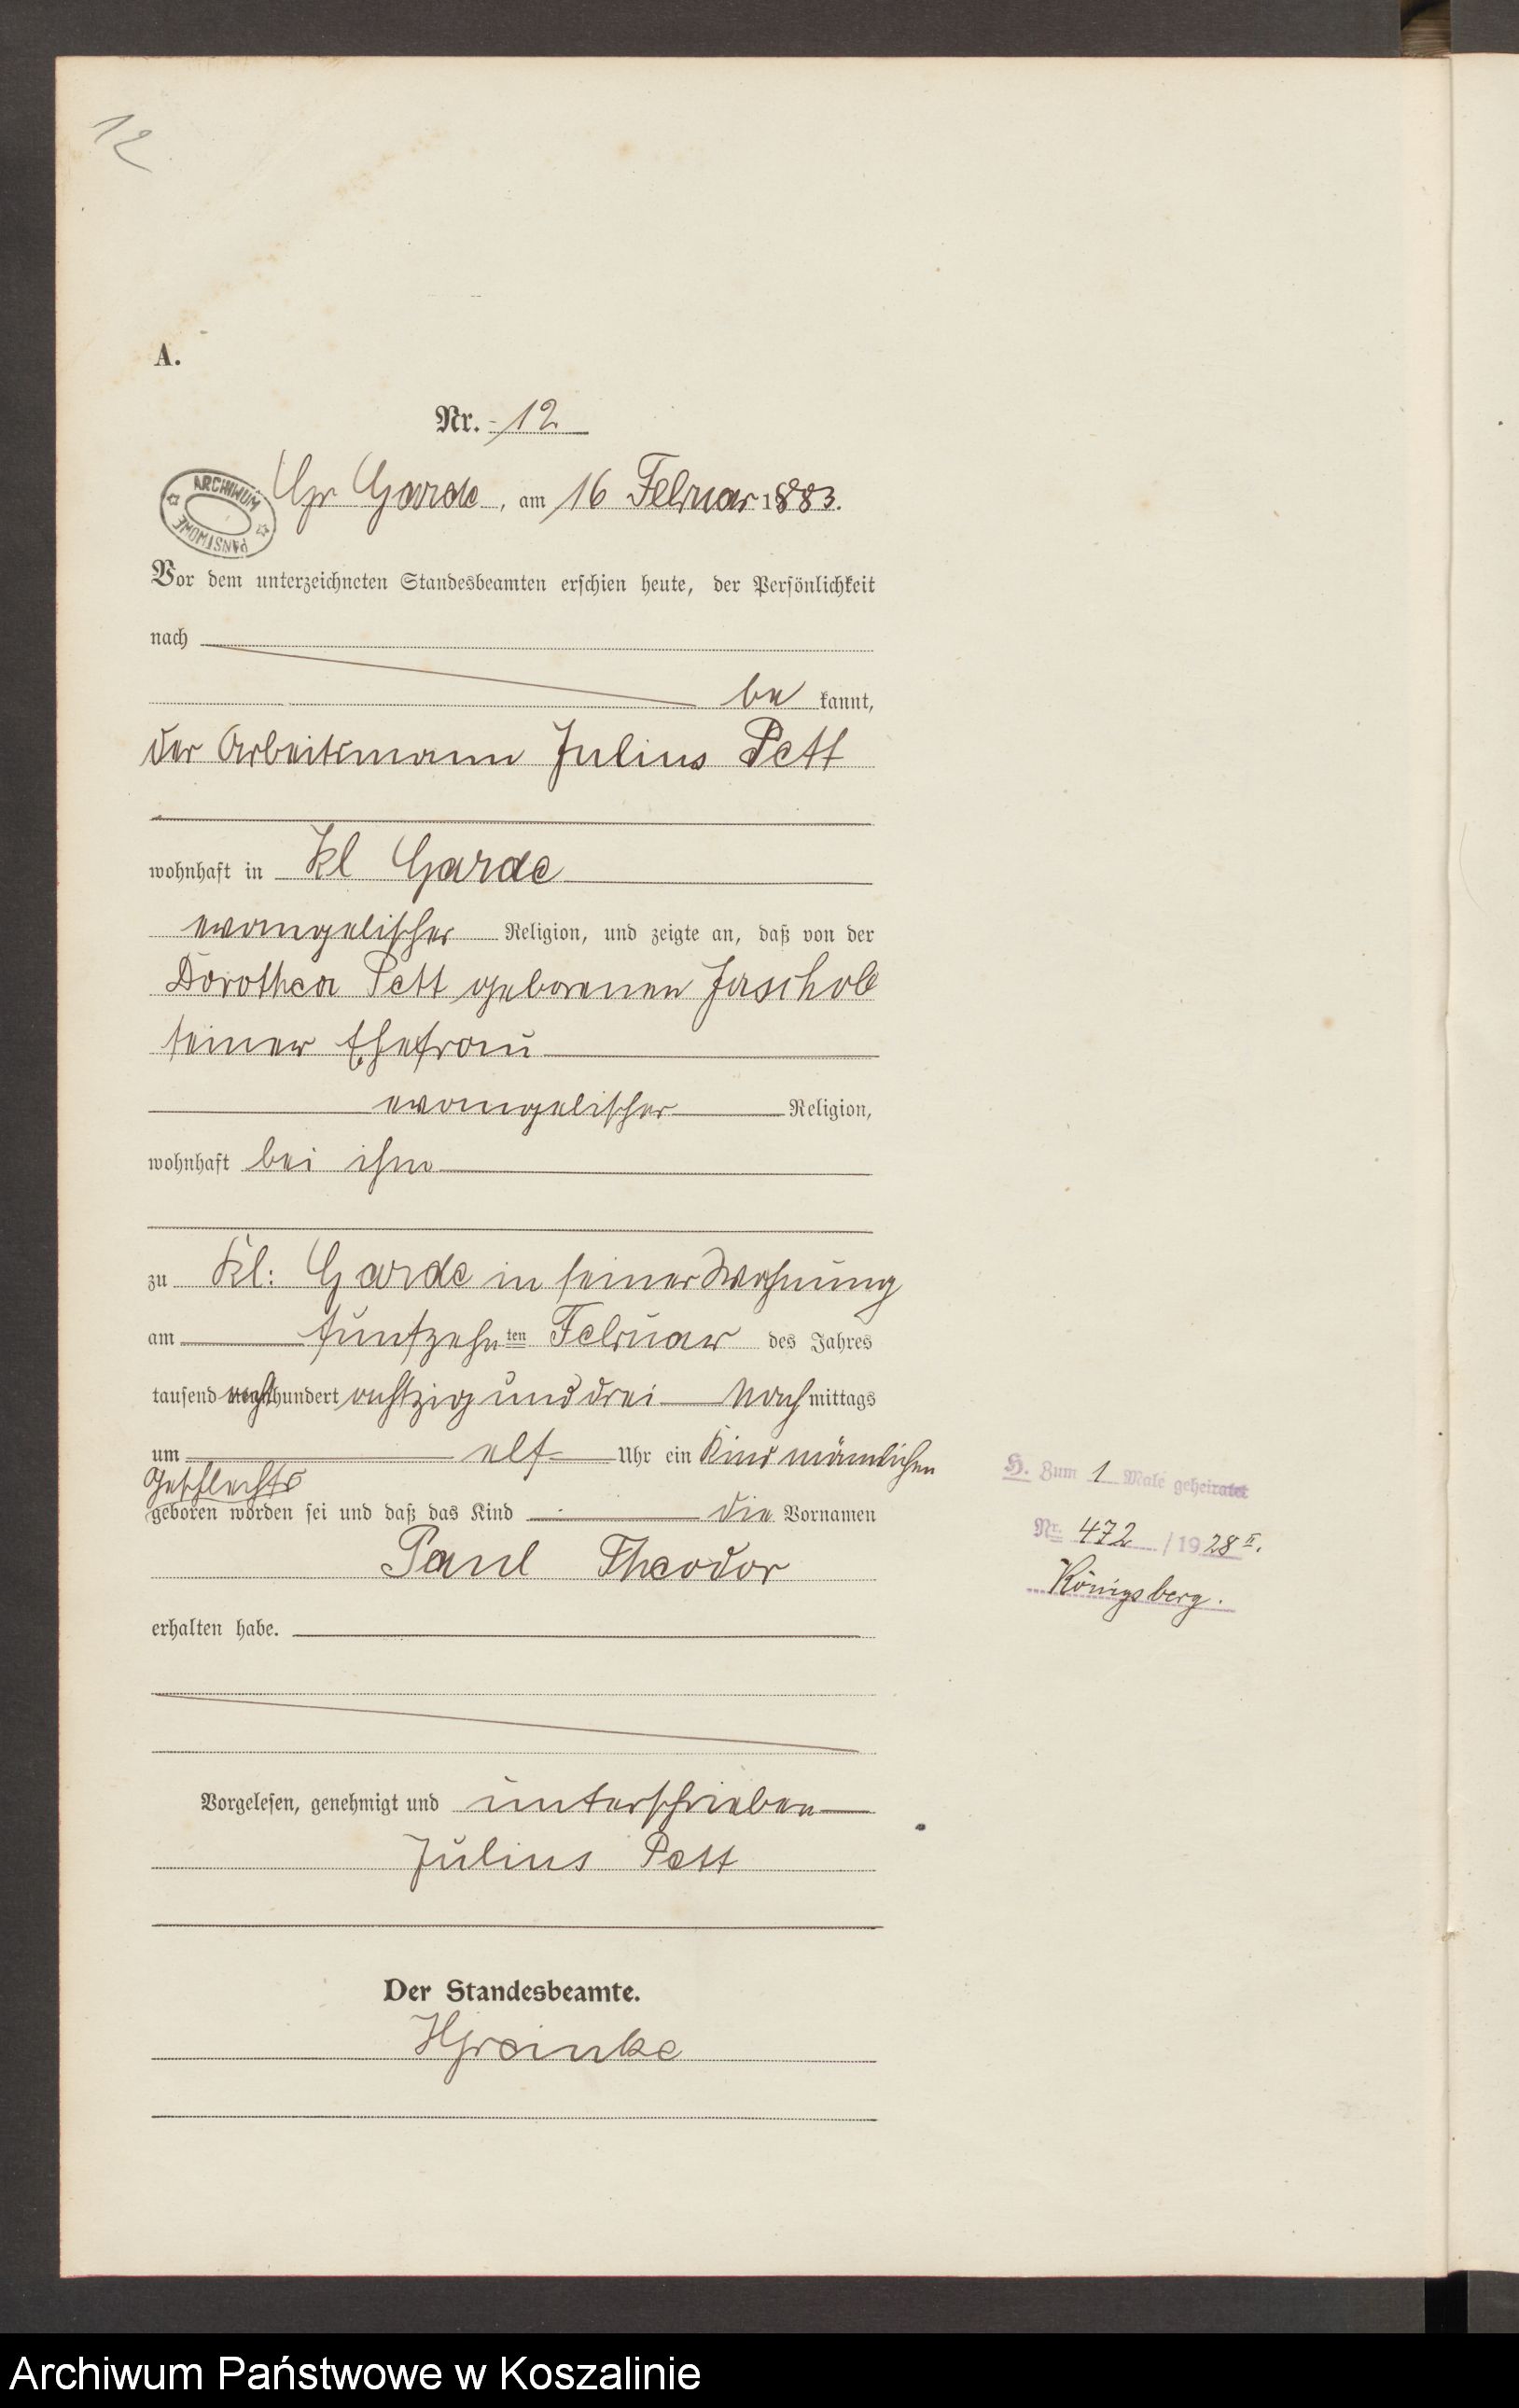 12
A.
Nr. 12
ARCHIWUM PAŃSTWOWE
Gr Garde, am 16 Februar 1883.
Vor dem unterzeichneten Standesbeamten erschien heute, der Persönlichkeit
nach
be kannt,
der Arbeitsmann Julius Pett
wohnhaft in Kl Garde
evangelischer Religion, und zeigte an, daß von der
Dorothea Pett geborenen Jaschob
seiner Ehefrau
evangelischer Religion,
wohnhaft bei ihm
zu Kl: Garde in seiner Wohnung
am fünfzehn ten Februar des Jahres
tausend acht hundert achtzig und drei Nach mittags
um elf Uhr ein Kind männlichen
Geschlechts
geboren worden sei und daß das Kind die Vornamen
Paul Theodor
erhalten habe.
H. Zum 1 Male geheiratet
Nr. 472 / 1928 II.
Königsberg.
Vorgelesen, genehmigt und unterschrieben
Julius Pett
Der Standesbeamte.
Archiwum Państwowe w Koszalinie